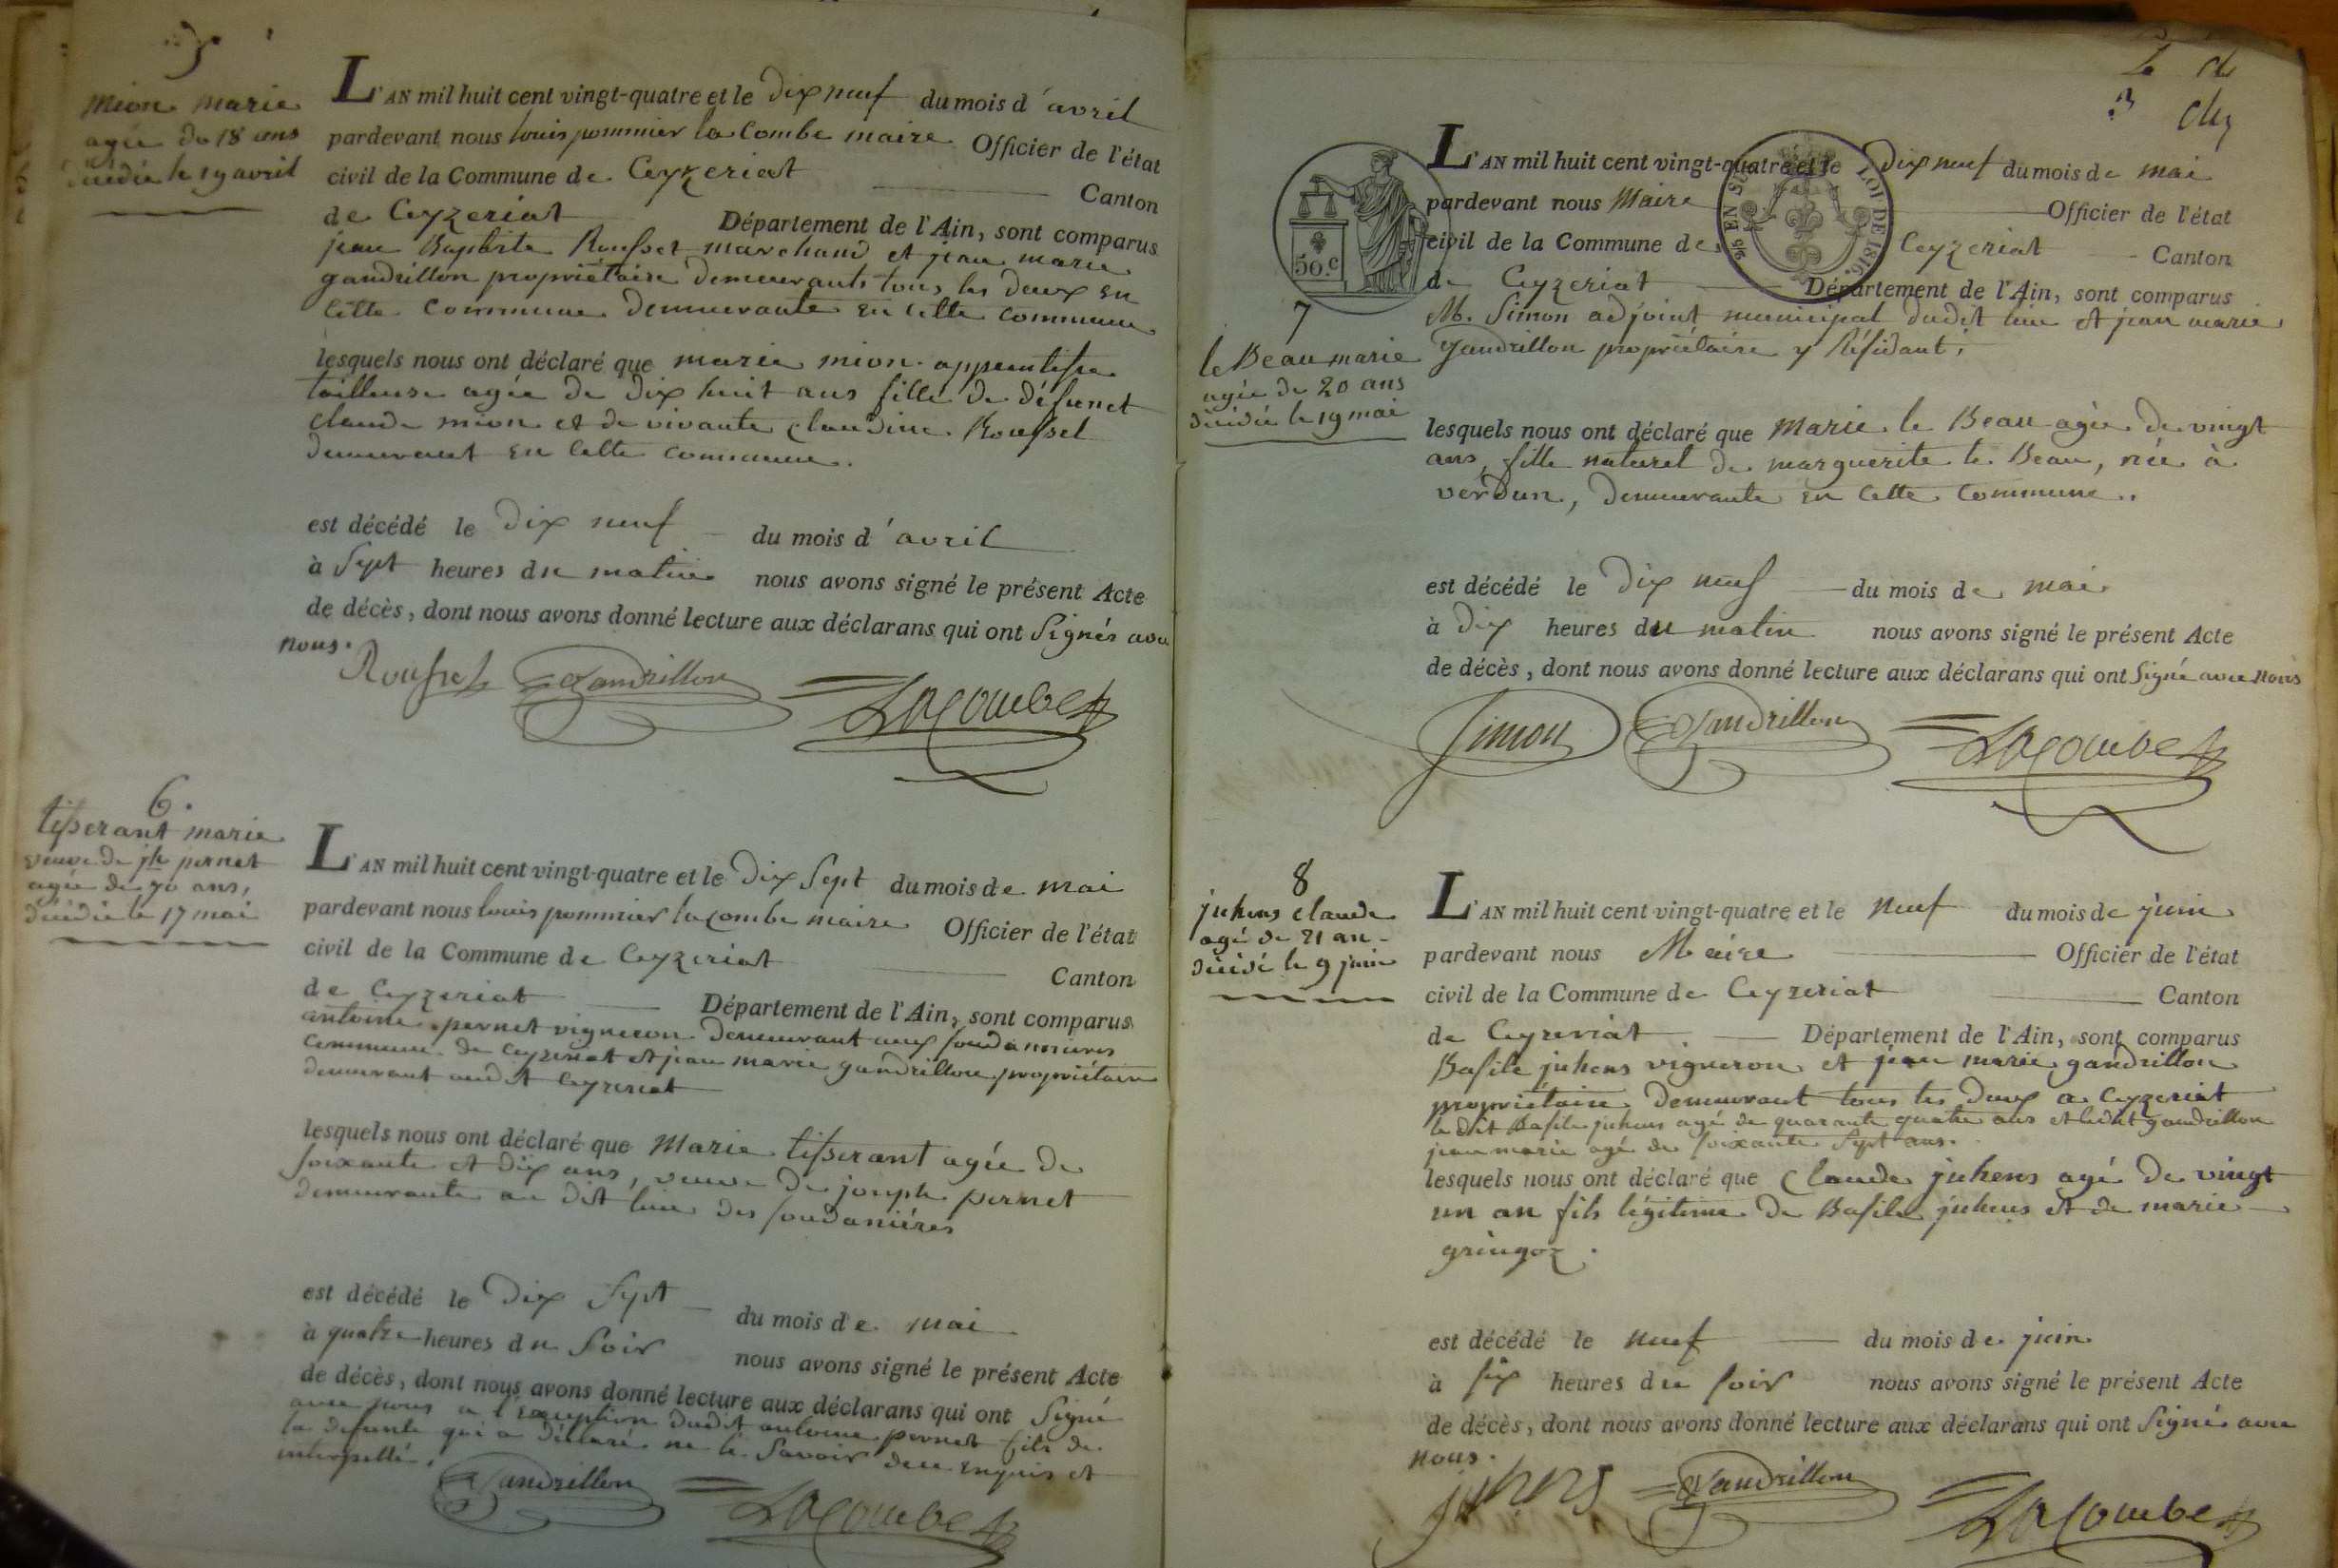 5
Mion marie
agée de 18 ans
décédée le 19 avril
L'AN mil huit cent vingt-quatre et le dix neuf du mois d'avril
pardevant nous louis pommier la Combe maire Officier de l'état
civil de la Commune de Ceyzeriat Canton
de Ceyzeriat Département de l'Ain, sont comparus
jean Baptiste Rousset marchand et jean marie
gandrillon propriétaire demeurants tous les deux en
cette commune demeurante en cette commune
lesquels nous ont déclaré que marie mion apprentisse
tailleuse agée de dix huit ans fille de défunct
claude mion et de vivante claudine Rousset
demeurant en cette commune.
est décédé le dix neuf du mois d'avril
à sept heures du matin nous avons signé le présent Acte
de décès, dont nous avons donné lecture aux déclarans qui ont signés avec
nous.
Rousset Gandrillon Lacombe
6.
tisserant marie
veuve de jh pernet
agée de 70 ans,
décédée le 17 mai
L'AN mil huit cent vingt-quatre et le dix sept du mois de mai
pardevant nous louis pommier lacombe maire Officier de l'état
civil de la Commune de Ceyzeriat Canton
de Ceyzeriat Département de l'Ain, sont comparus
antoine pernet vigneron demeurant aux soudanieres
commune de Ceyzeriat et jean marie gandrillon propriétaire
demeurant audit Ceyzeriat
lesquels nous ont déclaré que Marie tisserant agée de
soixante et dix ans, veuve de joseph pernet
demeurante au dit lieu des soudaniéres
est décédé le dix sept du mois de mai
à quatre heures du soir nous avons signé le présent Acte
de décès, dont nous avons donné lecture aux déclarans qui ont signé
avec nous a l'exception dudit antoine pernet fils de
la defunte qui a déclaré ne le savoir de ce enquis et
interpellé.
Gandrillon Lacombe
50.c
EN SUS
LOI DE 1816.
L'AN mil huit cent vingt-quatre et le dix neuf du mois de mai
pardevant nous Maire Officier de l'état
civil de la Commune de Ceyzeriat Canton
de Ceyzeriat Département de l'Ain, sont comparus
M. Simon adjoint municipal dudit lieu et jean marie
gandrillon propriétaire y résidant;
7
le Beau marie
agée de 20 ans
décédée le 19 mai
lesquels nous ont déclaré que Marie le Beau agée de vingt
ans, fille naturel de marguerite le Beau, née à
verdun, demeurante en cette commune.
est décédé le dix neuf du mois de mai
à dix heures du matin nous avons signé le présent Acte
de décès, dont nous avons donné lecture aux déclarans qui ont signé avec nous
Simon Gandrillon Lacombe
8
juhens claude
agé de 21 an
décédé le 9 juin
L'AN mil huit cent vingt-quatre et le neuf du mois de juin
pardevant nous Maire Officier de l'état
civil de la Commune de Ceyzeriat Canton
de Ceyzeriat Département de l'Ain, sont comparus
Basile juhens vigneron et jean marie gandrillon
propriétaire demeurant tous les deux a Ceyzeriat
le dit Basile juhens agé de quarante quatre ans et ledit gandrillon
jean marie agé de soixante sept ans.
lesquels nous ont déclaré que Claude juhens agé de vingt
un an fils légitime de Basile juhens et de marie
gringoz.
est décédé le neuf du mois de juin
à six heures du soir nous avons signé le présent Acte
de décès, dont nous avons donné lecture aux déclarans qui ont signés avec
nous.
juhens Gandrillon Lacombe